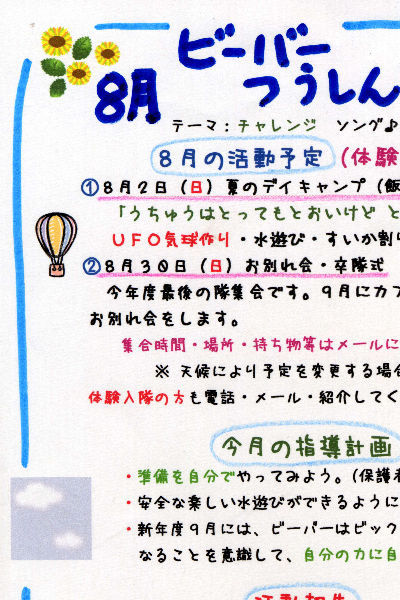 ビーバー
8月 つうしん
テーマ：チャレンジ ソング♪
8月の活動予定 (体験
①8月2日（日）夏のデイキャンプ（飯
「うちゅうはとってもとおいけど と
UFO気球作り・水遊び・すいか割り
②8月30日（日）お別れ会・卒隊式
今年度最後の隊集会です。9月にカブ
お別れ会をします。
集合時間・場所・持ち物等はメールに
※ 天候により予定を変更する場合
体験入隊の方も電話・メール・紹介してく
今月の指導計画
・準備を自分でやってみよう。(保護者
・安全な楽しい水遊びができるように
・新年度9月には、ビーバーはビック
なることを意識して、自分の力に自